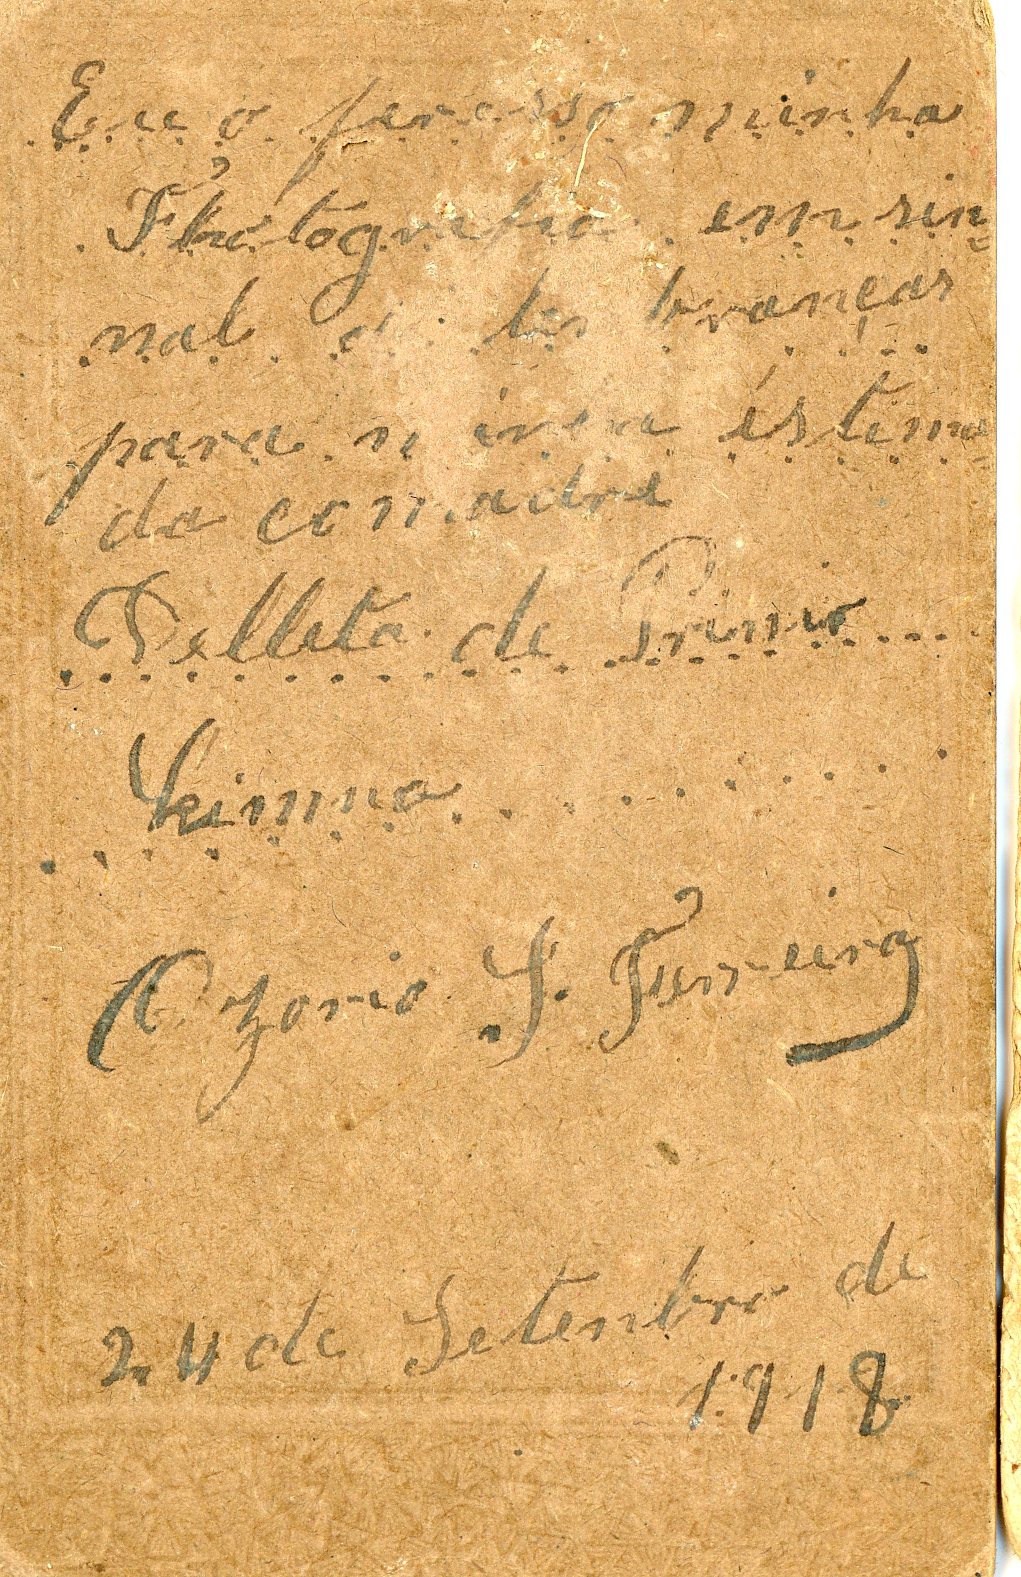 Eu o fereso minha
Fhotografia em sin=
nal de lenbranças
para minha éstima=
da comadre
Delleta de Primio
Ozorio S. Ferreira
24 de Setenbro de
1918